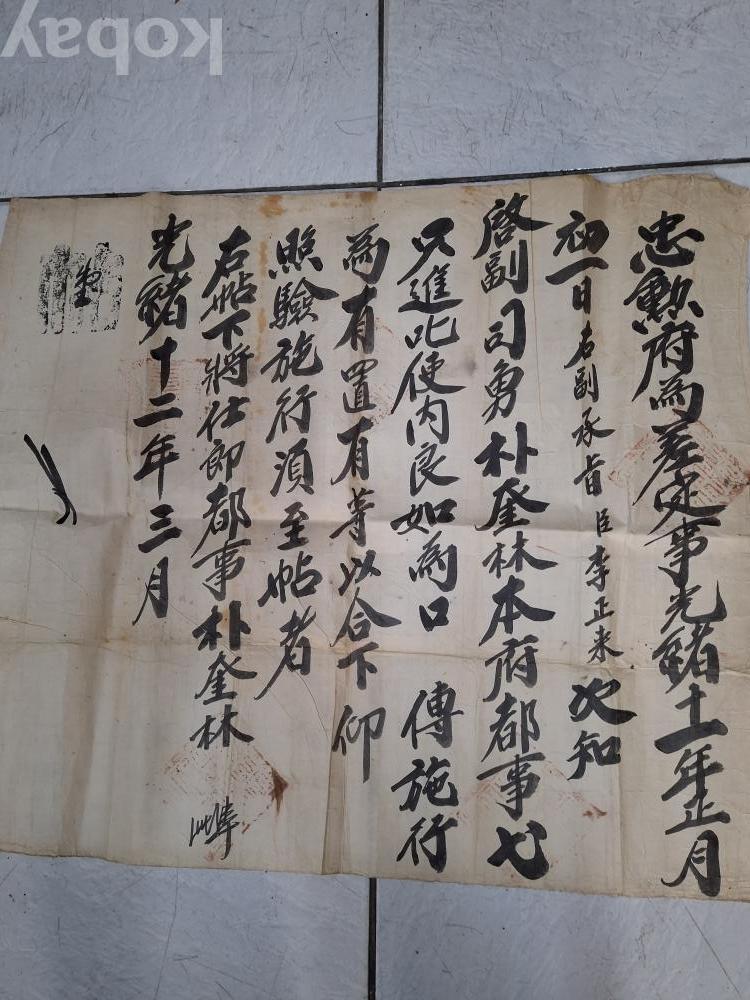 忠勳府為差定事光緖十一年正月
初一日右副承旨臣李正来次知
啓副司勇朴奎林本府都事弋
只進叱使內良如為口 傳施行
為有置有等以合下仰
照驗施行須至帖者
右帖下將仕郎都事朴奎林 此準
光緖十二年三月
kobay